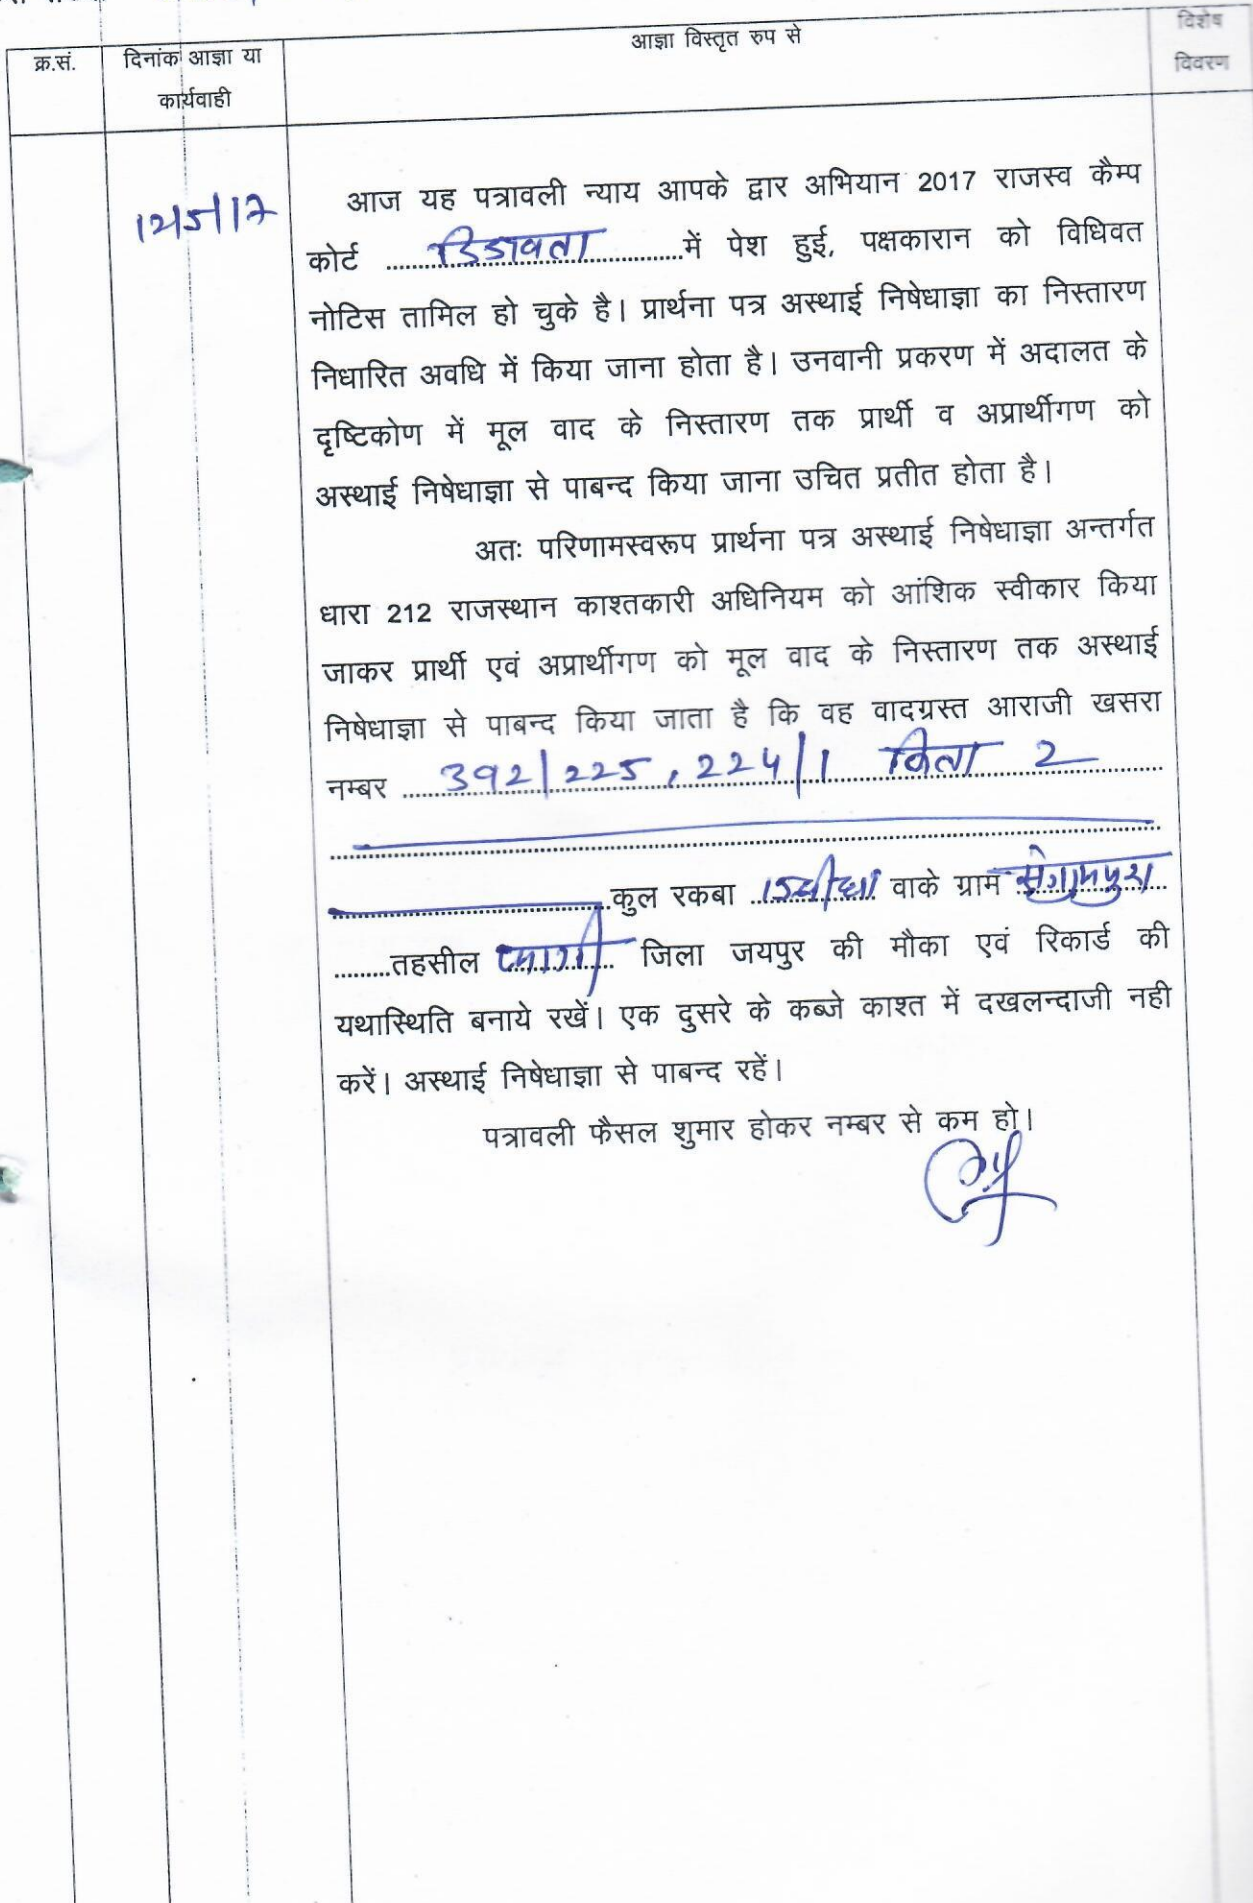 क्र.सं.
दिनांक आज्ञा या
कार्यवाही
आज्ञा विस्तृत रुप से
विशेष
विवरण
12/5/17
आज यह पत्रावली न्याय आपके द्वार अभियान 2017 राजस्व कैम्प
कोर्ट ......डिडावता......में पेश हुई, पक्षकारान को विधिवत
नोटिस तामिल हो चुके है। प्रार्थना पत्र अस्थाई निषेधाज्ञा का निस्तारण
निधारित अवधि में किया जाना होता है। उनवानी प्रकरण में अदालत के
दृष्टिकोण में मूल वाद के निस्तारण तक प्रार्थी व अप्रार्थीगण को
अस्थाई निषेधाज्ञा से पाबन्द किया जाना उचित प्रतीत होता है।
अतः परिणामस्वरूप प्रार्थना पत्र अस्थाई निषेधाज्ञा अन्तर्गत
धारा 212 राजस्थान काश्तकारी अधिनियम को आंशिक स्वीकार किया
जाकर प्रार्थी एवं अप्रार्थीगण को मूल वाद के निस्तारण तक अस्थाई
निषेधाज्ञा से पाबन्द किया जाता है कि वह वादग्रस्त आराजी खसरा
नम्बर ...392/225, 224/1 किता 2
......कुल रकबा ...15बीघा वाके ग्राम
.........तहसील फागी जिला जयपुर की मौका एवं रिकार्ड की
यथास्थिति बनाये रखें। एक दुसरे के कब्जे काश्त में दखलन्दाजी नही
करें। अस्थाई निषेधाज्ञा से पाबन्द रहें।
पत्रावली फैसल शुमार होकर नम्बर से कम हो।